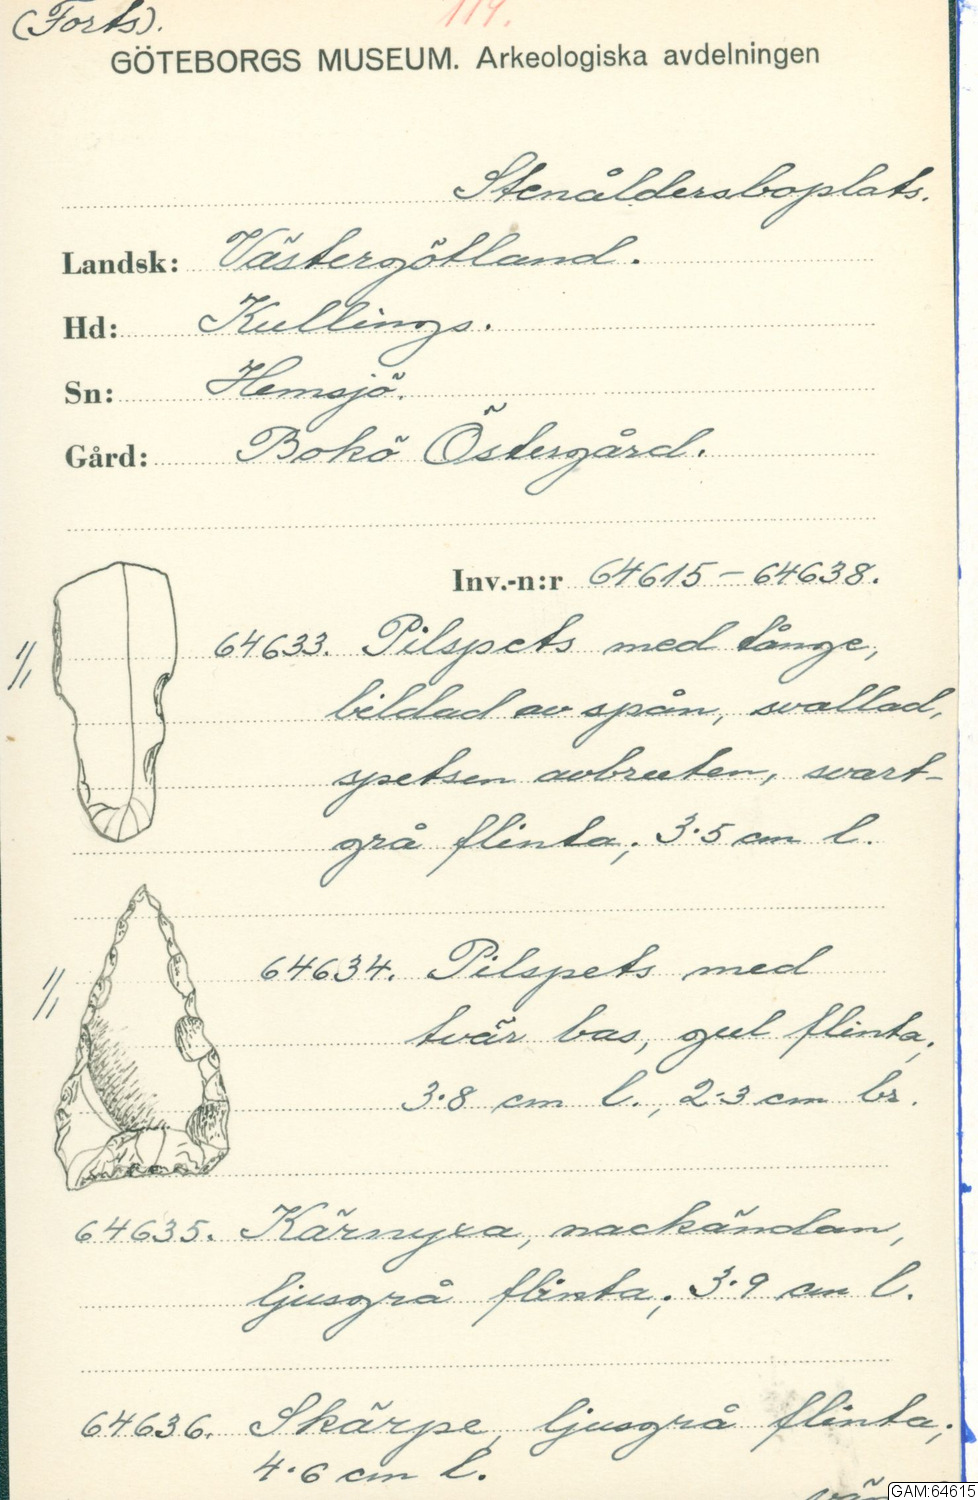 (Forts). 114.
GÖTEBORGS MUSEUM. Arkeologiska avdelningen
Stenåldersboplats.
Landsk: Västergötland.
Hd: Kullings.
Sn: Hemsjö.
Gård: Bokö Östergård.
Inv.-n:r 64615–64638.
1/1
64633. Pilspets med tånge,
bildad av spån, svallad,
spetsen avbruten, svart-
grå flinta; 3·5 cm l.
1/1
64634. Pilspets med
tvär bas, gul flinta;
3·8 cm l., 2·3 cm br.
64635. Kärnyxa, nackändan,
ljusgrå flinta; 3·9 cm l.
64636. Skärpe, ljusgrå flinta;
4·6 cm l.
GAM:64615